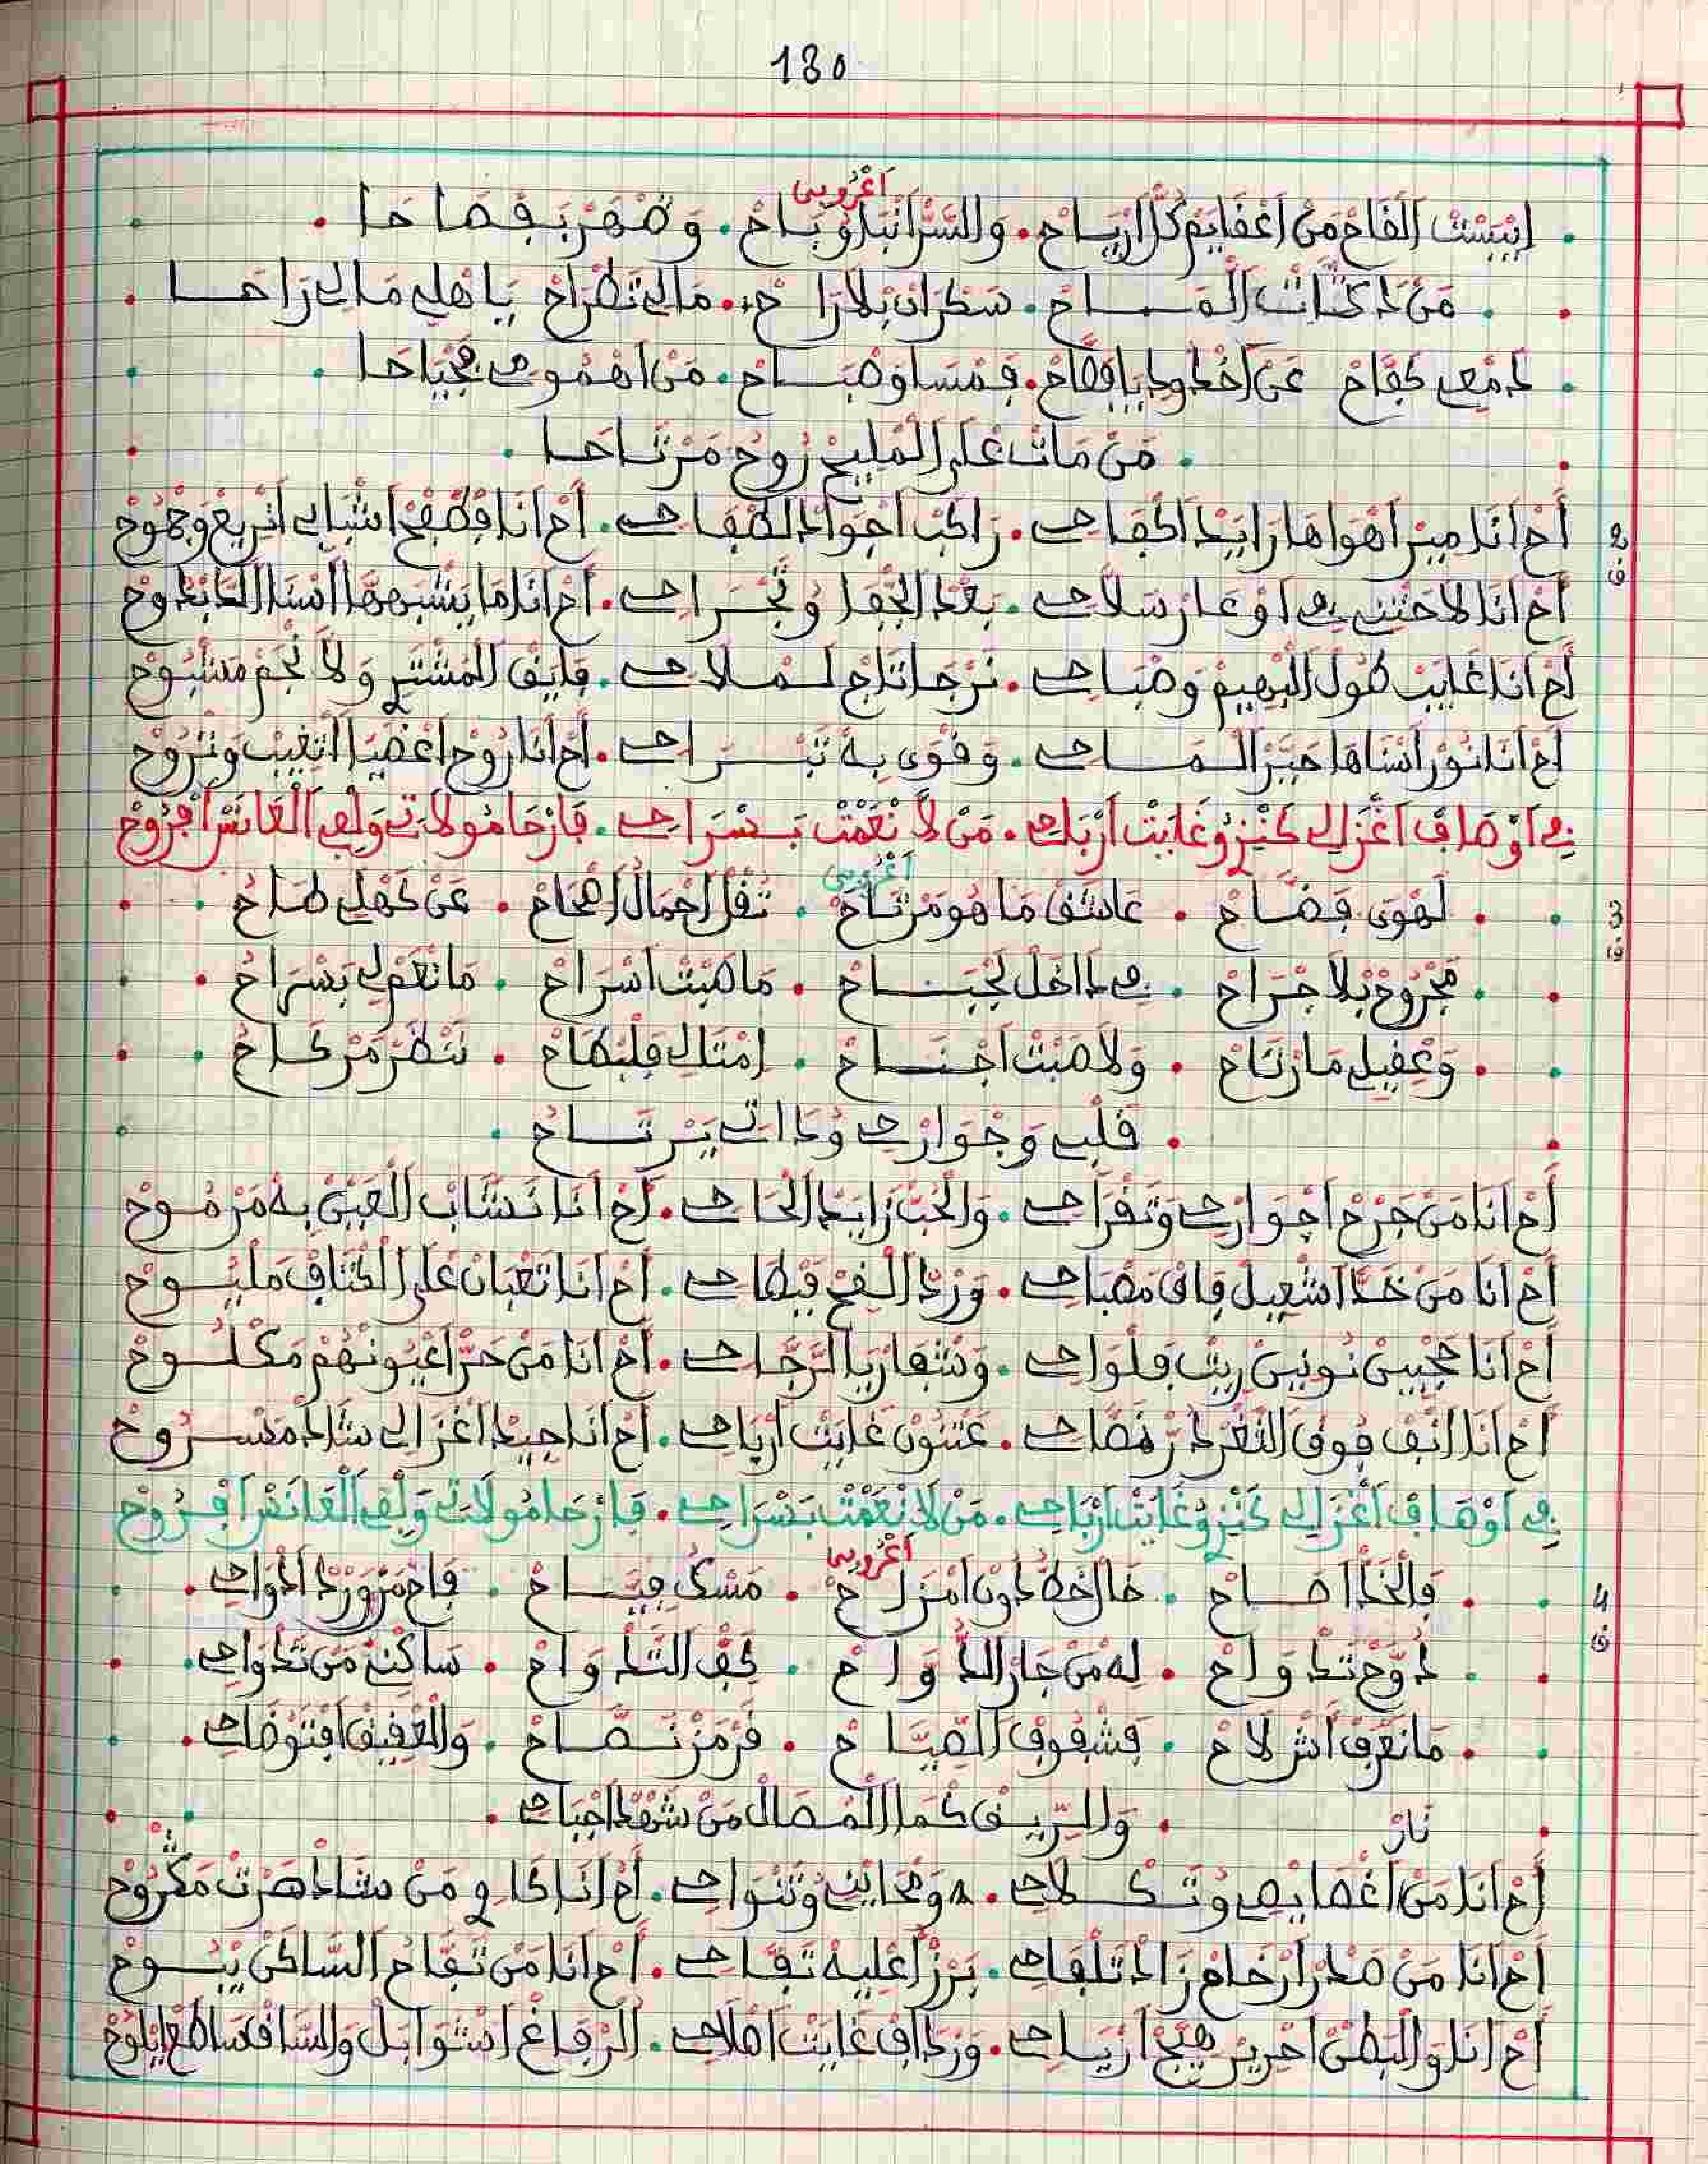 130
اعروبي
اببست الفاح من اعفايم كل ارياح . والسر انباو باح . وضهر بفصاحا
من داكتات الماح . سكران بلا راح . مالي تطراح يا هلي مالي راحا
دمعي كفاح عن اخدود يا فصاح . فمسا وصباح . من اهمومي مجياحا
من مات على المليح روح مرتاحا
2
ف
أح انا مير اهواها رايد اكفاحي . راكب اجواد الطفاحي . أح انا
أح انا لاحتني في اوعار سلاحي . بعد الجفا وتجراحي . أح انا ما يشبهها انسا
أح انا غايب طول البهيم وصباحي . نرجا تاج لملاحي . فايق المشتري ولا نجم مسبوح
أح انا نور اسناها حير الماحي . وقوى به تبراحي . أح انا روح اعضيا اتغيب وتروح
في اوصاف اغزالي كنزو غايت ارباحي . من لا نعمت بسراحي . فارحا مولاتي ولفي العانس افروح
اعروبي
3
ف
لهوى فضاح . عاشق ما هو مرتاح . تقل اجمال اصحاح . عن كهلي طاح
مجروح بلا جراح . في داخل لجباح . ما صبت اسراح . ما نعم لي بسراح
وعقيلي ما رتاح . ولا صبت اجناح . امتلك فلبطاح . ننظر مركاح
قلبي وجوارحي وداتي يرتاح
أح انا من جرح اجوارحي وتقراحي . والحب زايد الحاحي . أح انا نشاب العين به مرموح
أح انا من خد اشعيل فاق مصباحي . ورد الفح فبطاحي . أح انا تعبان على لكتاف مليوح
أح انا حجبين نونين ريت فلواحي . وشفار يا الرجاحي . أح انا من حر اعيونهم مكلوح
أح انا انف فوق الثغر در فضاحي . عتنون غايت ارباحي . أح انا جيد اغزالي شاد مسروح
في اوصاف اغزالي كنزو غايت ارباحي . من لا نعمت بسراحي . فارحا مولاتي ولفي العانس افروح
اعروبي
4
ف
فالخد اضاح . خال خط دون امزاح . مسك فياح . فاح من ورد ادواحي
دوح تدواح . له من جار الدواح . كف التدواح . ساكن من تدواحي
ما نعرف اش لاح . فشفوف الصياح . فرمز نصاح . والعقيق افتوضاحي
نار
والريق كما المصال من شهد اجباحي
أح انا من اعضايضي وتكلاحي . ومحايني وتنواحي . أح انا كاوي من شاد صرت مكروح
أح انا من صدر ارخام زاد تلقاحي . برز اعليه تفاحي . أح انا من تفاح الساكن يبوح
أح انا والبطن احرير هيج ارياحي . ورداف غايت اصلاحي . الرفاغ اشوابل والساق ساطع ايلوح